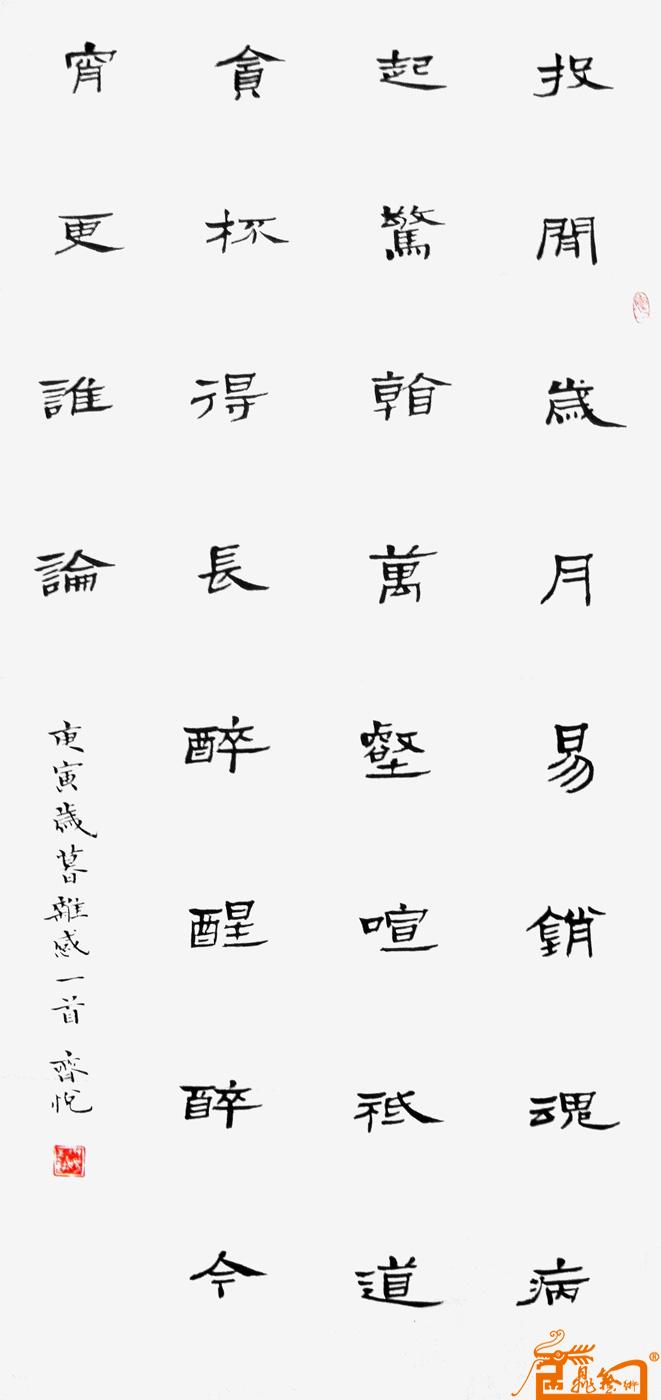 投閒歲月易銷魂病
起驚翰萬壑喧祗道
貪杯得長醉醒醉今
宵更誰論
庚寅歲暮雜感一首 齊悅